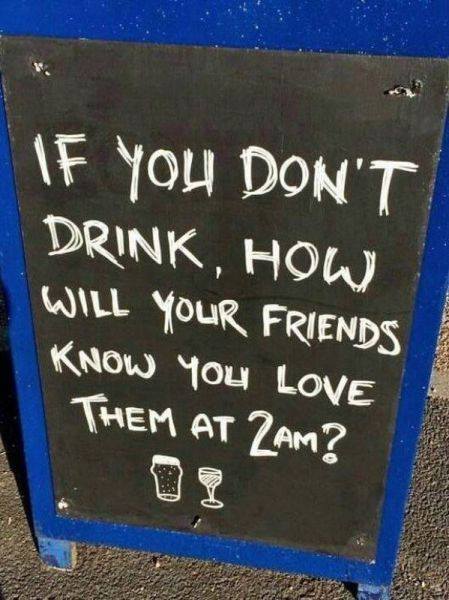 IF YOU DON'T
DRINK, HOW
WILL YOUR FRIENDS
KNOW YOU LOVE
THEM AT 2AM?